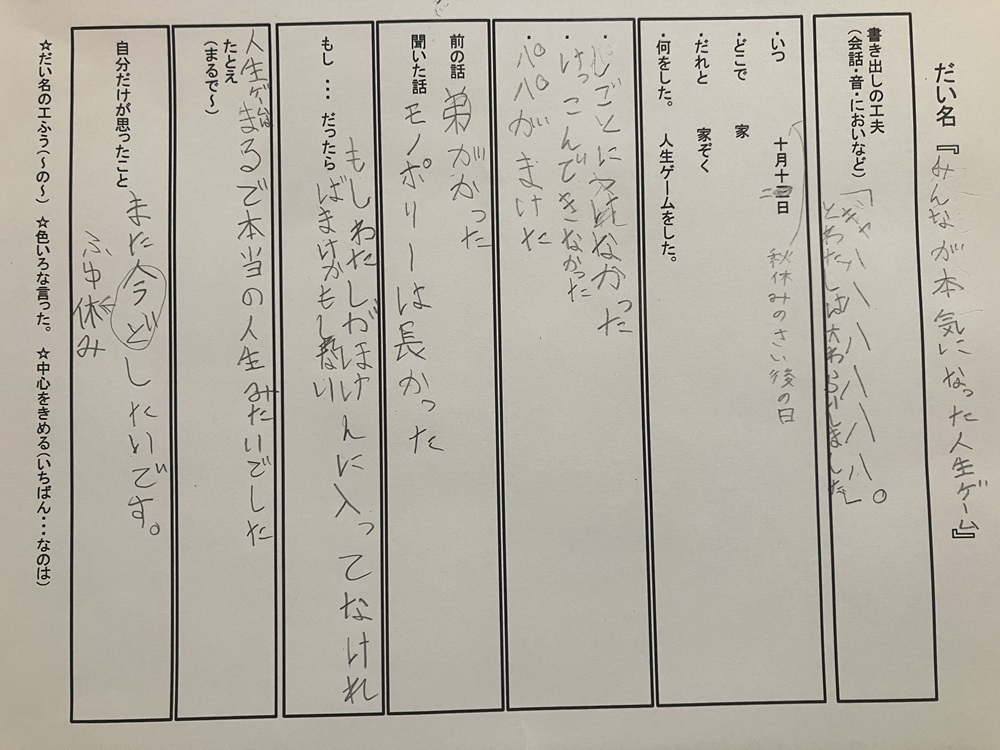 だい名『みんなが本気になった人生ゲーム』
書き出しの工夫
(会話・音・においなど)
「ギャハハハハハハ」。
とわたしは大わらいしました
・いつ 十月十二日 秋休みのさい後の日
・どこで 家
・だれと 家ぞく
・何をした。 人生ゲームをした。
・しごとにつけなかった
・けっこんできなかった
・パパがまけた
前の話 弟がかった
聞いた話 モノポリーは長かった
もし ・・・ だったら
もしわたしがほけんに入ってなけれ
ばまけかもしれない
たとえ
(まるで~)
人生ゲームはまるで本当の人生みたいでした
自分だけが思ったこと
また今どしたいです。
ふゆ休み
☆だい名の工ふう(~の~) ☆色いろな言った。 ☆中心をきめる(いちばん・・・なのは)